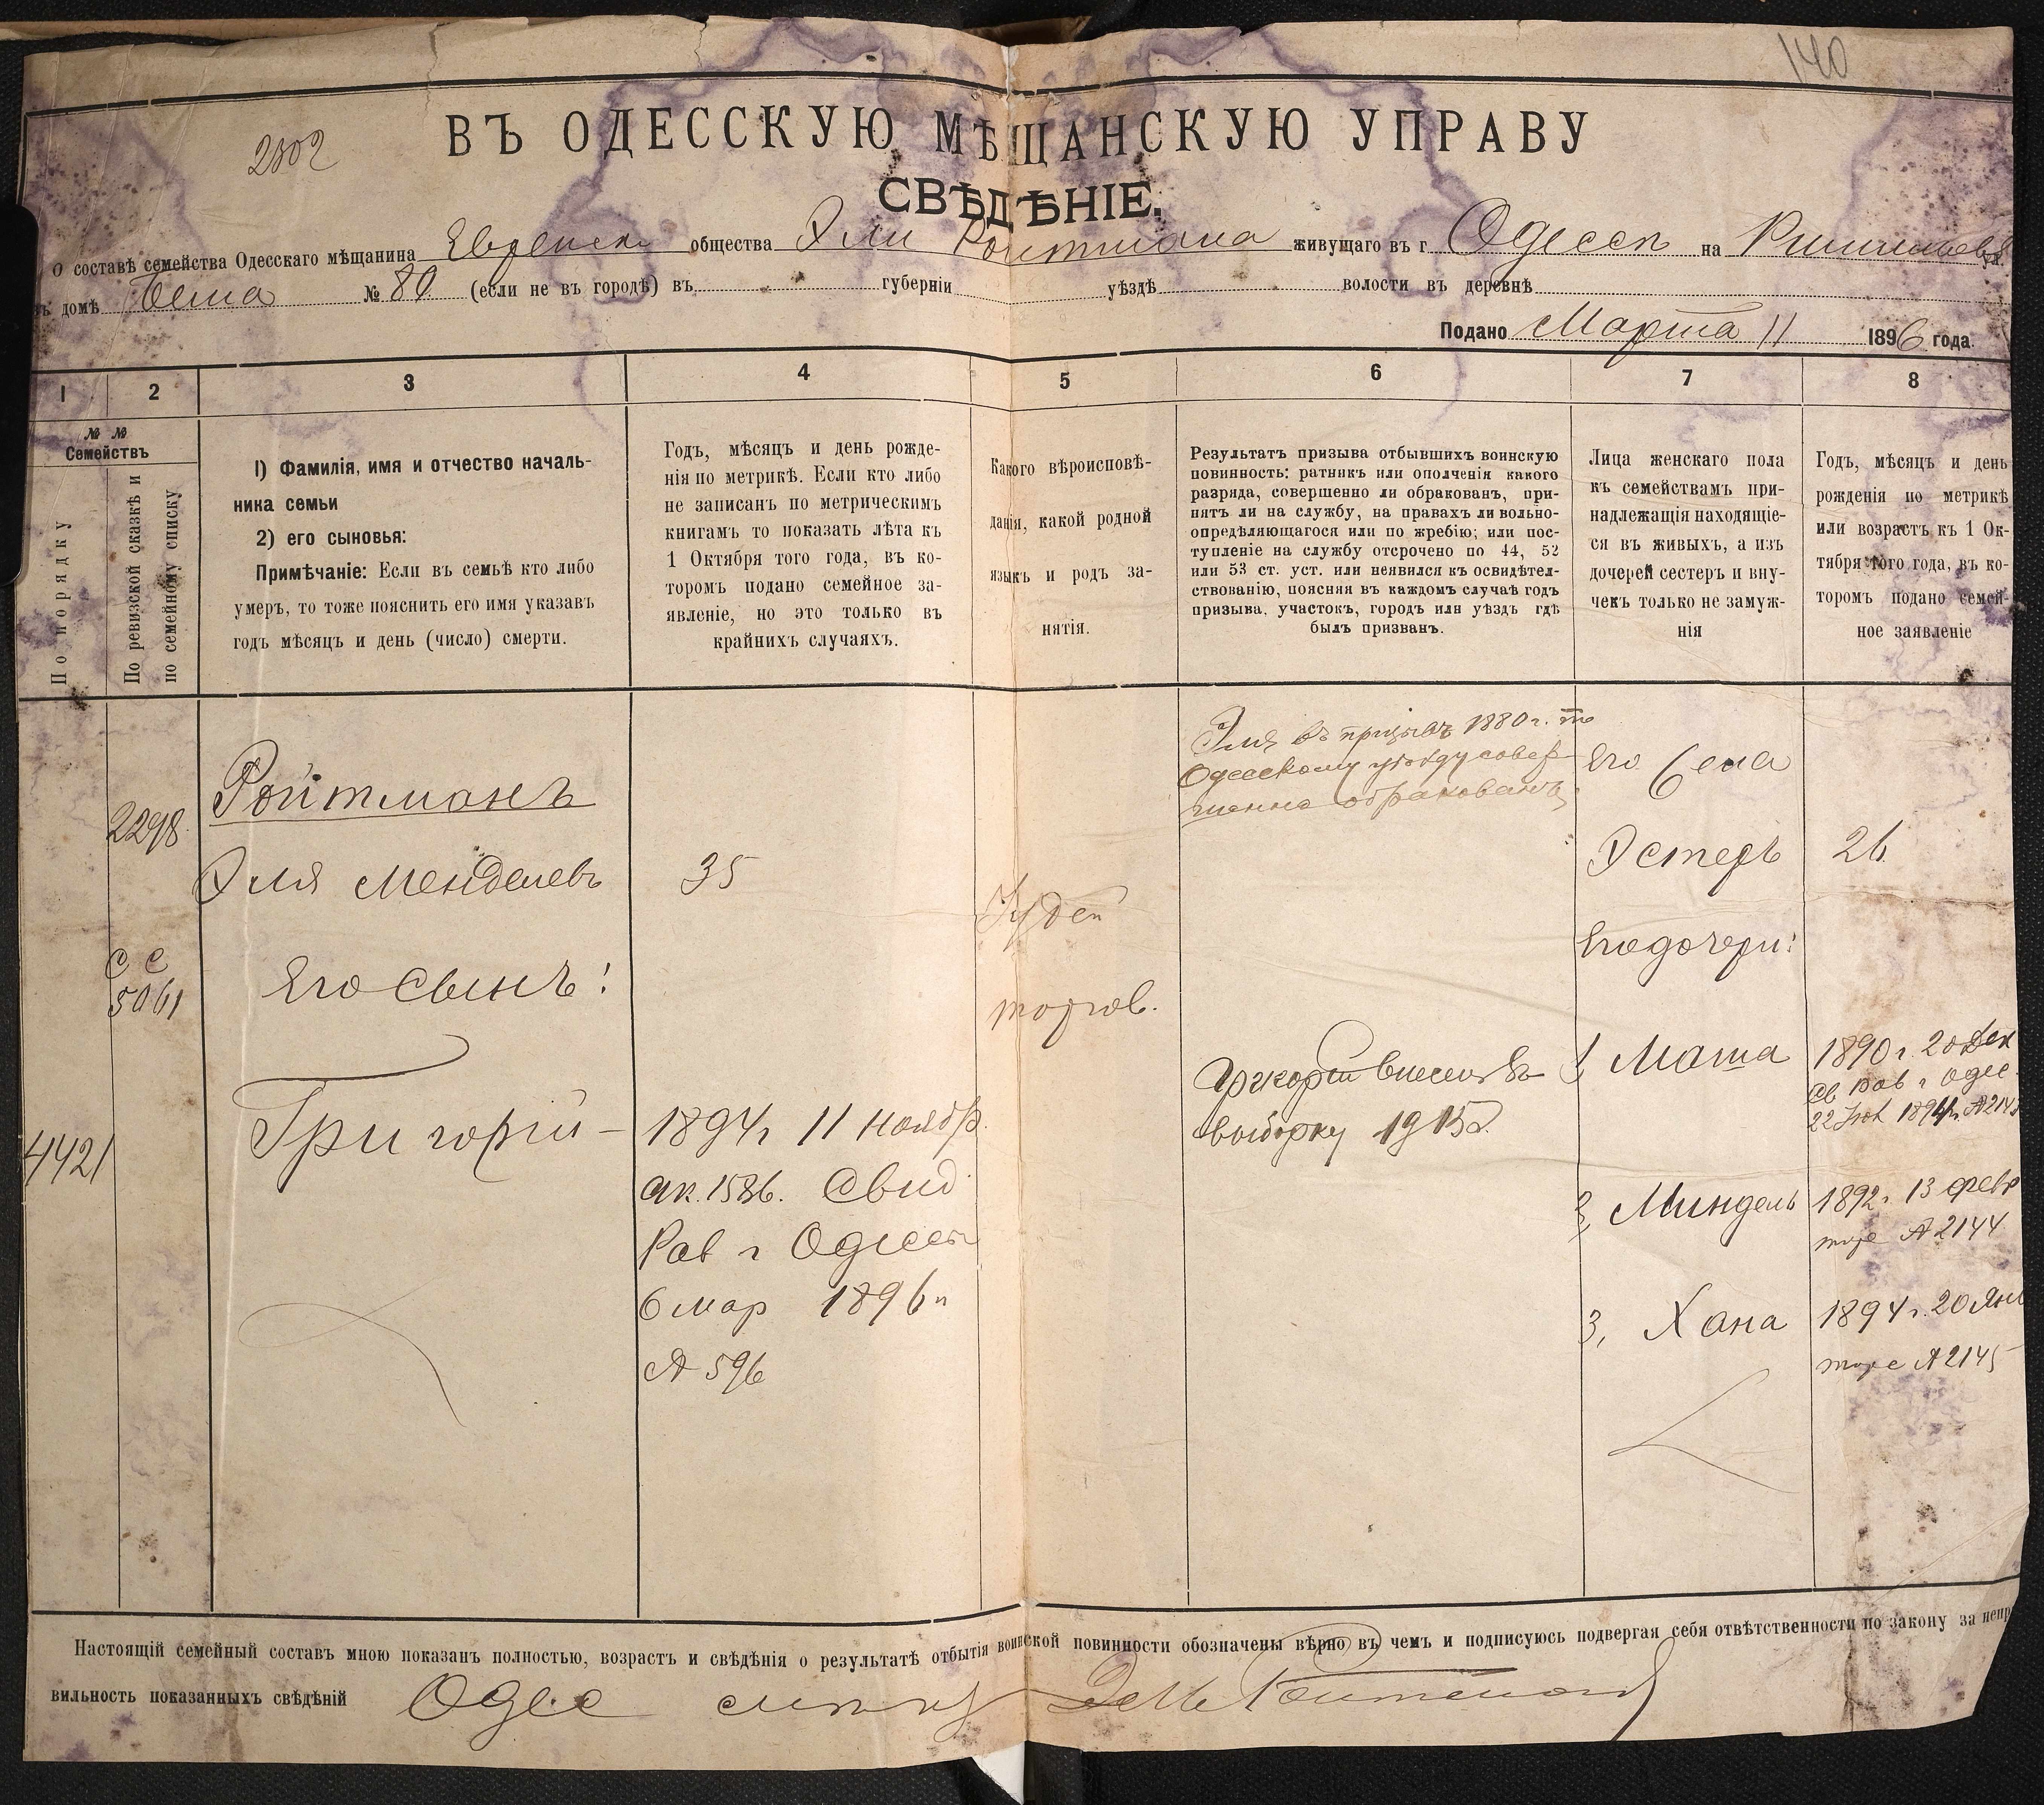 140
2502
ВЪ ОДЕССКУЮ МѢЩАНСКУЮ УПРАВУ
СВѢДѢНІЕ.
О составѣ семейства Одесскаго мѣщанина Еврейск общества Эли Ройтмана живущаго въ г Одессѣ на ул.
въ домѣ № 80 (если не въ городѣ) въ губерніи уѣздѣ волости въ деревнѣ
Подано Марта 11 1896 года.
1 2 3 4 5 6 7 8
№ №
Семействъ
По порядку
По ревизской сказкѣ и
по семейному списку
1) Фамилія, имя и отчество началь-
ника семьи
2) его сыновья:
Примѣчаніе: Если въ семьѣ кто либо
умеръ, то тоже пояснить его имя указавъ
годъ мѣсяцъ и день (число) смерти.
Годъ, мѣсяцъ и день рожде-
нія по метрикѣ. Если кто либо
не записанъ по метрическимъ
книгамъ то показать лѣта къ
1 Октября того года, въ ко-
торомъ подано семейное за-
явленіе, но это только въ
крайнихъ случаяхъ.
Какого вѣроисповѣ-
данія, какой родной
языкъ и родъ за-
нятія.
Результатъ призыва отбывшихъ воинскую
повинность: ратникъ или ополченія какого
разряда, совершенно ли обракован, при-
нятъ ли на службу, на правахъ ли вольно-
опредѣляющагося или по жребію; или пос-
тупленіе на службу отсрочено по 44, 52
или 53 ст. уст. или неявился къ освидѣтел-
ствованію, поясняя въ каждомъ случаѣ годъ
призыва, участокъ, городъ или уѣздъ гдѣ
былъ призванъ.
Лица женскаго пола
къ семействамъ при-
надлежащія находящіе-
ся въ живыхъ, а изъ
дочерей сестеръ и вну-
чекъ только не замуж-
нія
Годъ, мѣсяцъ и день
рожденія по метрикѣ
или возрастъ къ 1 Ок-
тября того года, въ ко-
торомъ подано семей-
ное заявленіе
2298
Ройтманъ
Эля Менделевъ
35
Іудей
торгов.
Эля въ призыв 1880 г. по
Одесскому уѣзду совер-
шенно обракованъ
Его жена
Эстеръ
26
С С
5061
Его Сынъ:
Его дочери:
4421
Григорій –
1894г 11 ноябр.
ак. 1586. Свид
Рав г Одессы
6 мар 1896 г
№ 596
Григорій внесенъ въ
выборку 1915 г.
1, Маша
1890 г. 20 Дек
Св Рав г Одес.
2, Миндель
1892 г. 13 февр
тоже № 2144
3, Хана
1894 г. 20 Янв
тоже № 2145
Настоящій семейный составъ мною показанъ полностью, возрастъ и свѣдѣнія о результатѣ отбытія воинской повинности обозначены вѣрно въ чемъ и подписуюсь подвергая себя отвѣтственности по закону за непра-
вильность показанныхъ свѣдѣній Одес